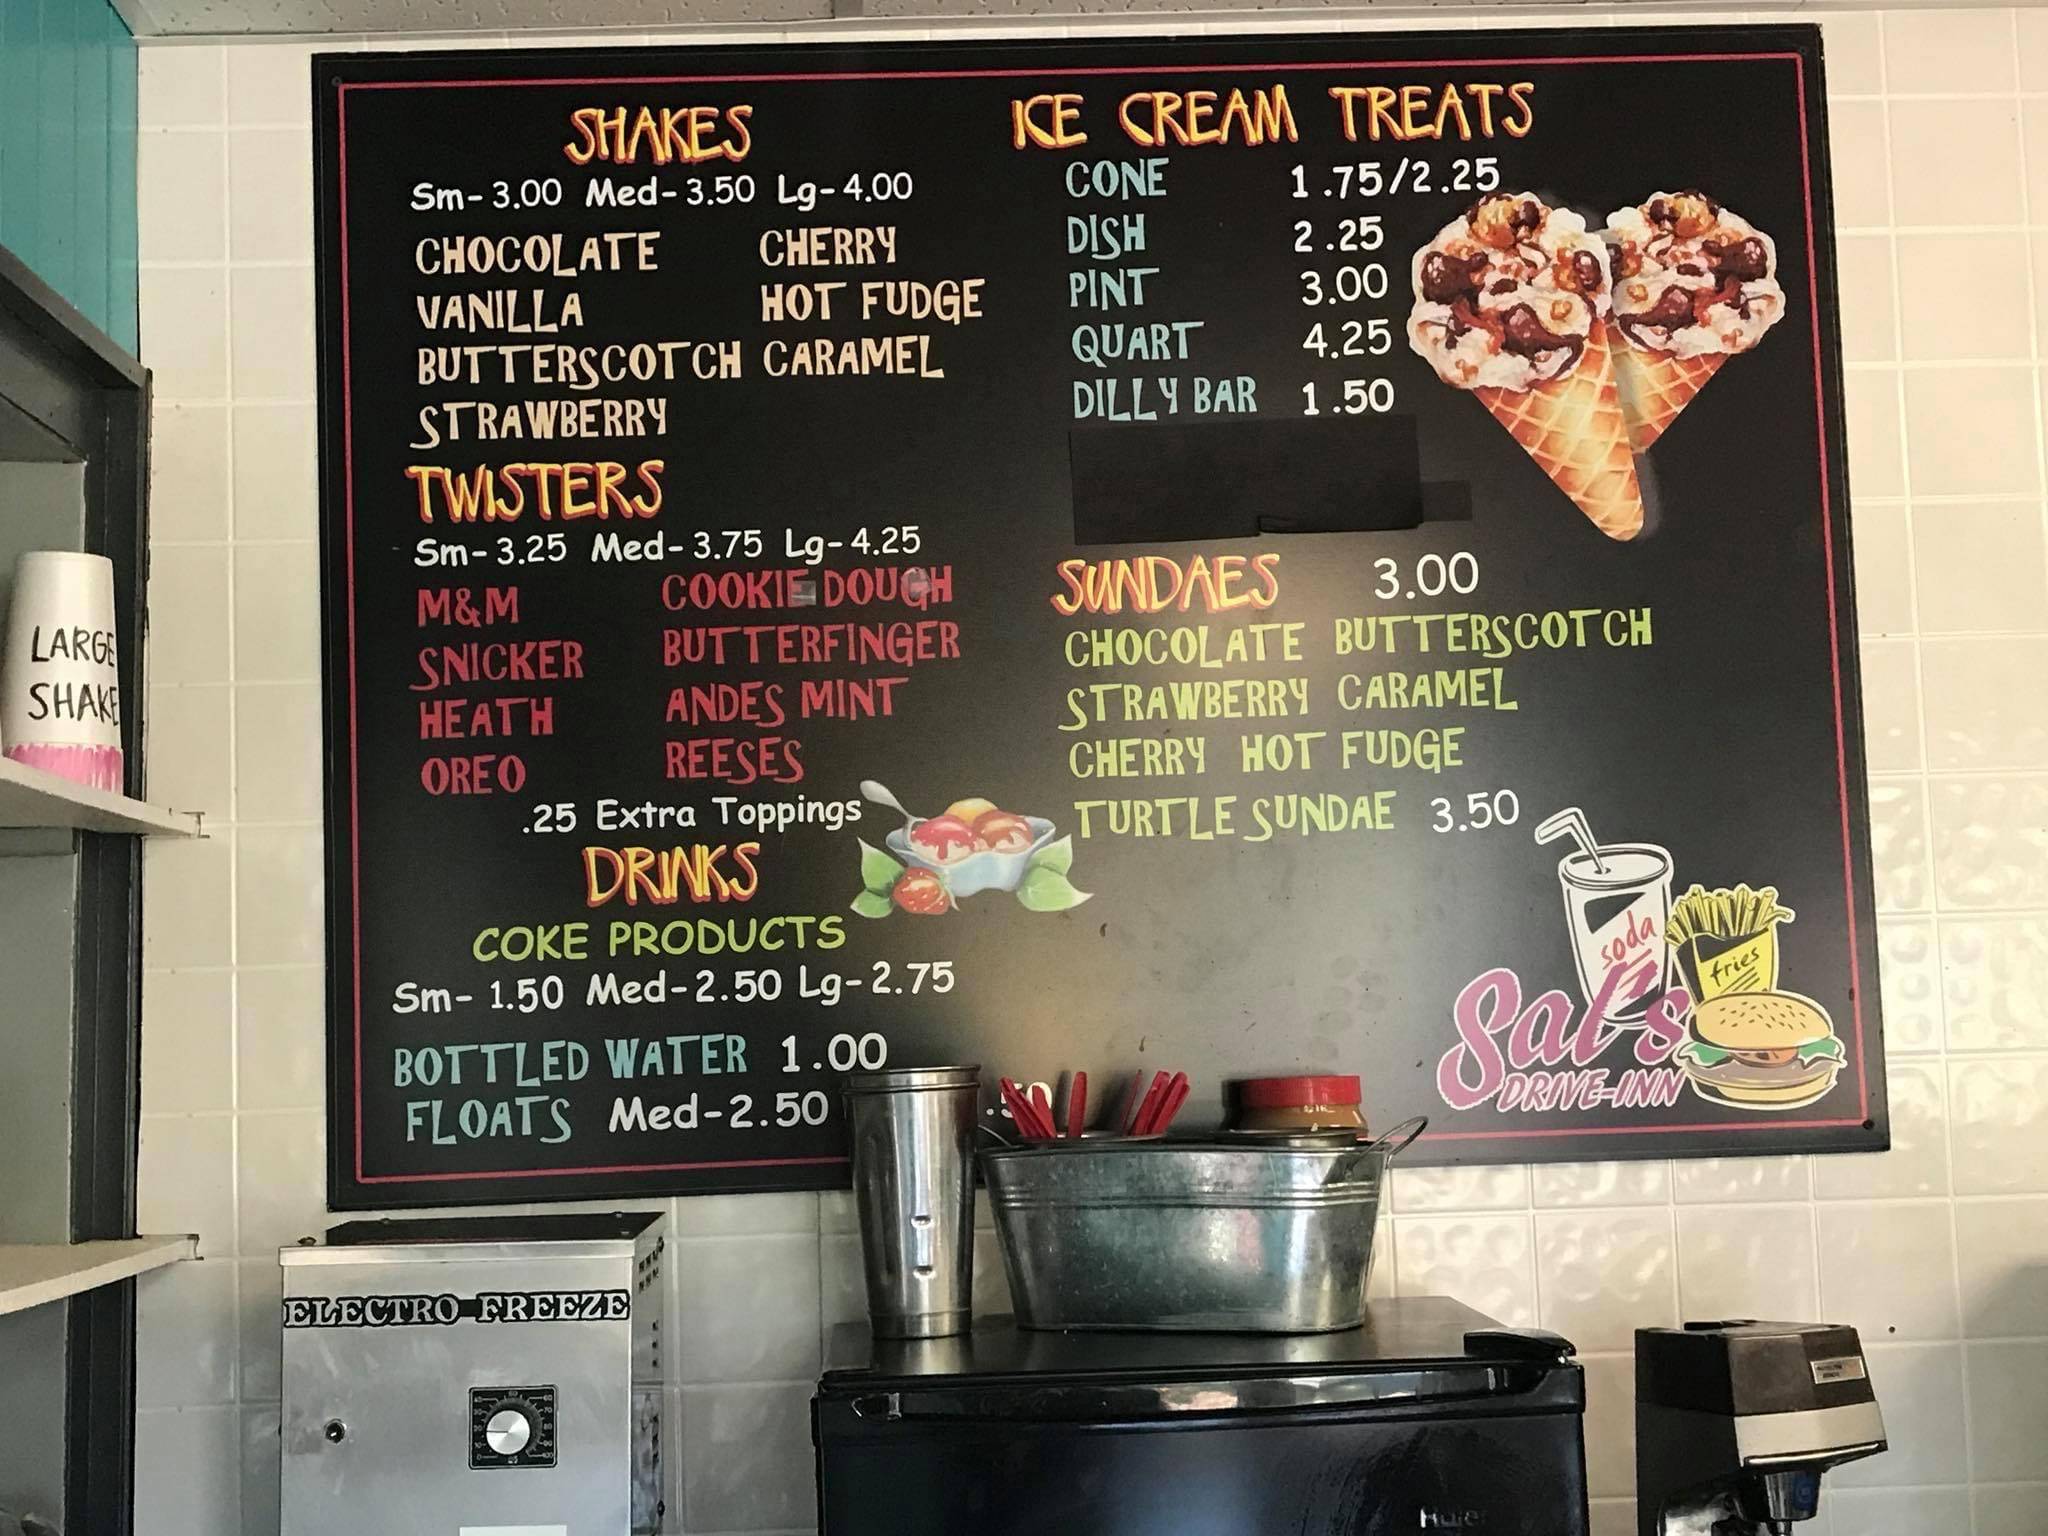 SHAKES
Sm- 3.00 Med- 3.50 Lg- 4.00
CHOCOLATE CHERRY
VANILLA HOT FUDGE
BUTTERSCOTCH CARAMEL
STRAWBERRY
TWISTERS
Sm- 3.25 Med- 3.75 Lg- 4.25
M&M COOKIE DOUGH
SNICKER BUTTERFINGER
HEATH ANDES MINT
OREO REESES
.25 Extra Toppings
DRINKS
COKE PRODUCTS
Sm- 1.50 Med-2.50 Lg-2.75
BOTTLED WATER 1.00
FLOATS Med-2.50 .50
ICE CREAM TREATS
CONE 1.75/2.25
DISH 2.25
PINT 3.00
QUART 4.25
DILLY BAR 1.50
SUNDAES 3.00
CHOCOLATE BUTTERSCOTCH
STRAWBERRY CARAMEL
CHERRY HOT FUDGE
TURTLE SUNDAE 3.50
soda
fries
Sal's
DRIVE-INN
LARGE
SHAKE
ELECTRO FREEZE
Haier